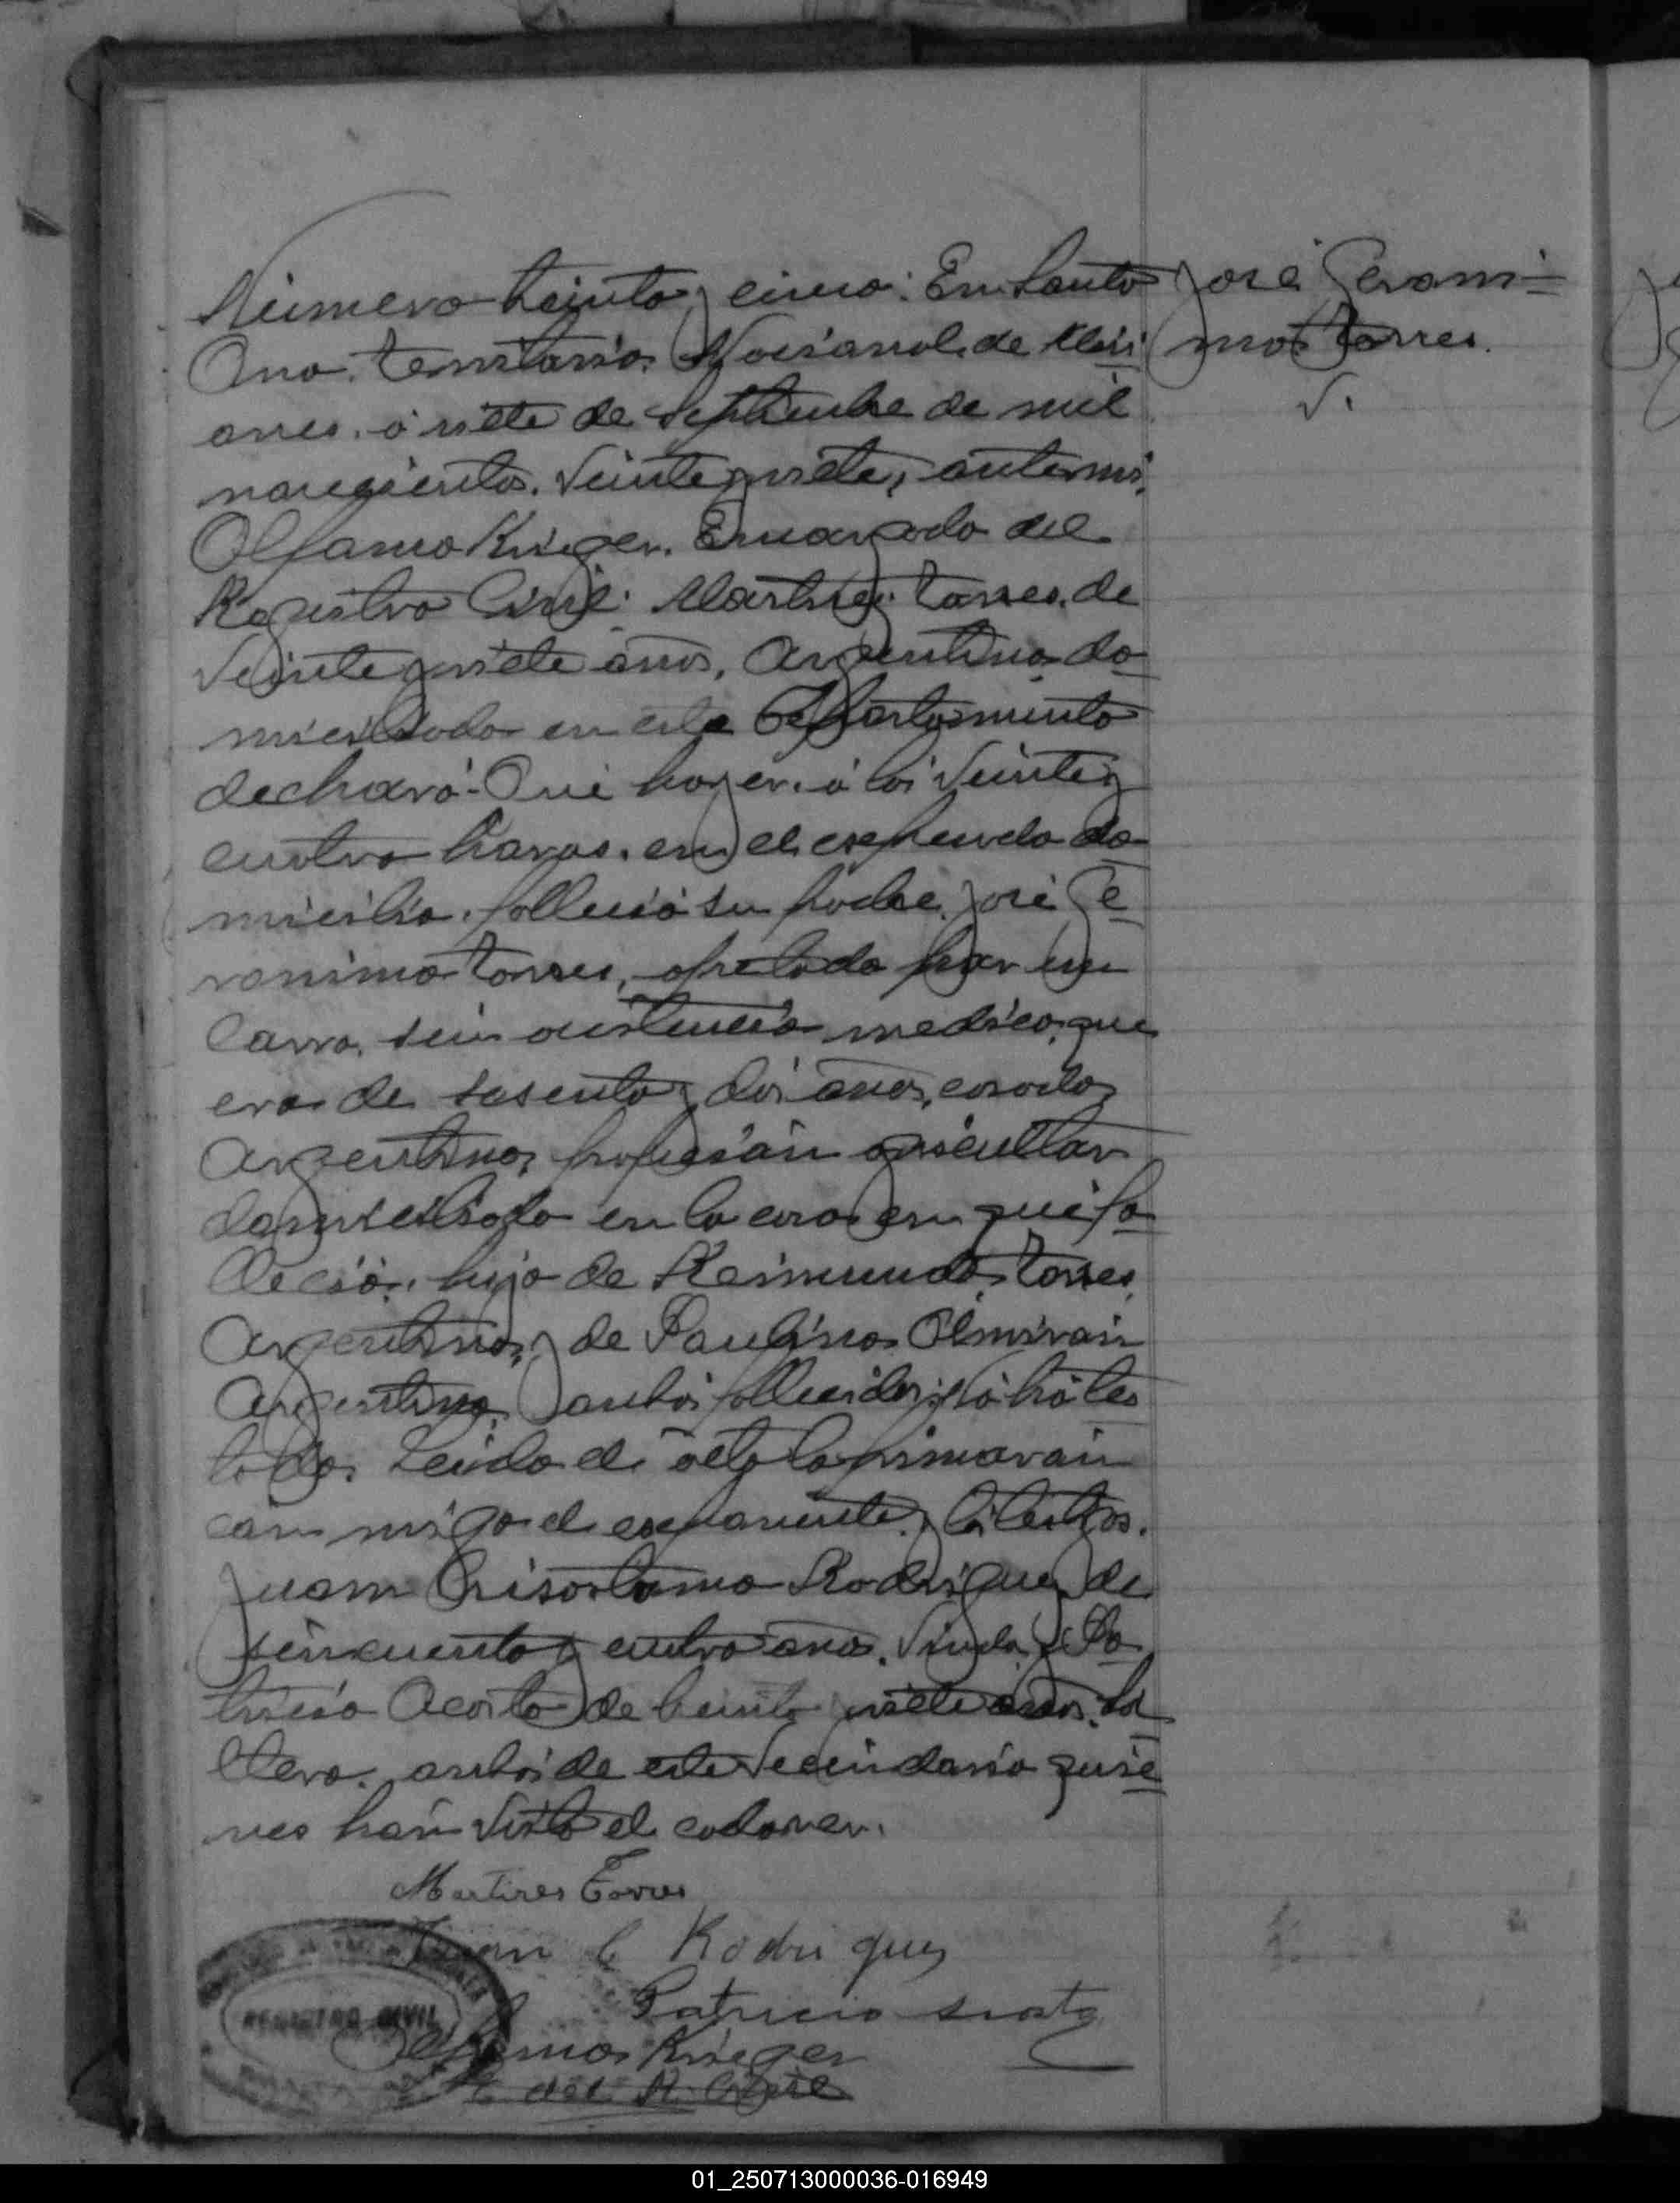 Número treinta y cinco: En Santa
Ana. territorio Nacional de Misi
ones. á siete de Septiembre de mil
novecientos. Veinte y siete, ante mi.
Olfamo Krieger. Encargado del
Registro Civil. Martires Torres. de
Veinte y siete años, Argentino do-
miciliado en este Departamento
declaró. Que hoyer. á las Veinte y
cuatro horas. en el espresado do-
micilio. fallesió su padre José Ge-
ronimo Torres, apretado por un
Carro. sein asistencia medica, que
era de sesenta y dos años, casado,
Argentino, profesión agricultor
domiciliado en la casa en que fa-
llesió. hijo de Reimundo Torres,
Argentino, y de Paulina Almiron
Argentina. ambos fallesidos, No há tes
tado. Leida el acta la firmaron
con migo el exponente. y los testigos.
Juan Crisostomo Rodriguez de
sincuenta y cuatro años. Viudo, y Pa-
tricio Acosta de treinta y siete años. Sol
tero. ambos de este Vecindario quie-
nes han visto el cadaver.
Martires Torres
Juan C Rodriguez
Patricio
Olfamo Krieger
E. del R. Civil
REGISTRO CIVIL
José Geroni-
mo Torres.
V.
01_250713000036-016949